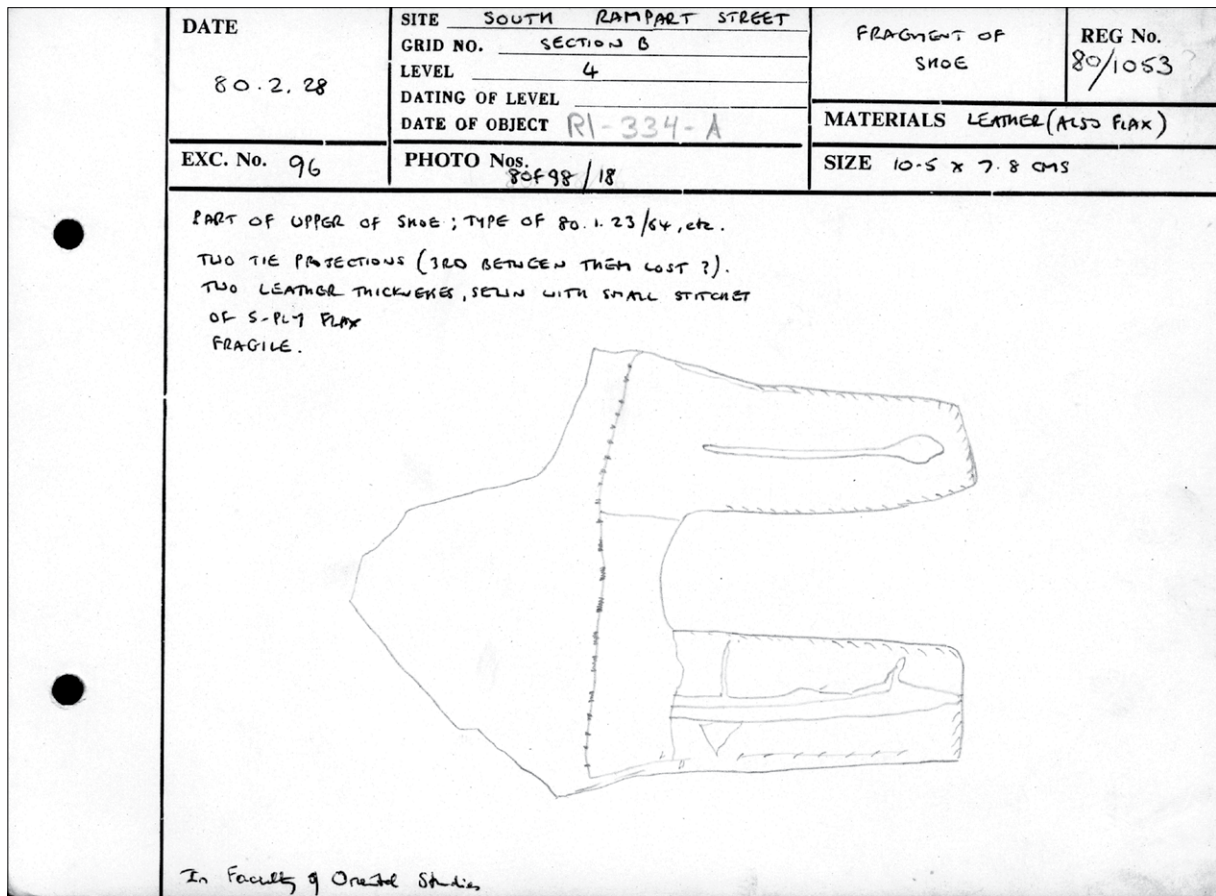 DATE
80.2.28
SITE SOUTH RAMPART STREET
GRID NO. SECTION B
LEVEL 4
DATING OF LEVEL
DATE OF OBJECT R1-334-A
FRAGMENT OF
SHOE
REG No.
80/1053 ?
MATERIALS LEATHER (ALSO FLAX)
EXC. No. 96
PHOTO Nos.
80F98/18
SIZE 10.5 x 7.8 CMS
PART OF UPPER OF SHOE; TYPE OF 80.1.23/64, etc.
TWO TIE PROJECTIONS (3RD BETWEEN THEM LOST?).
TWO LEATHER THICKNESSES, SEWN WITH SMALL STITCHES
OF S-PLY FLAX
FRAGILE.
In Faculty of Oriental Studies